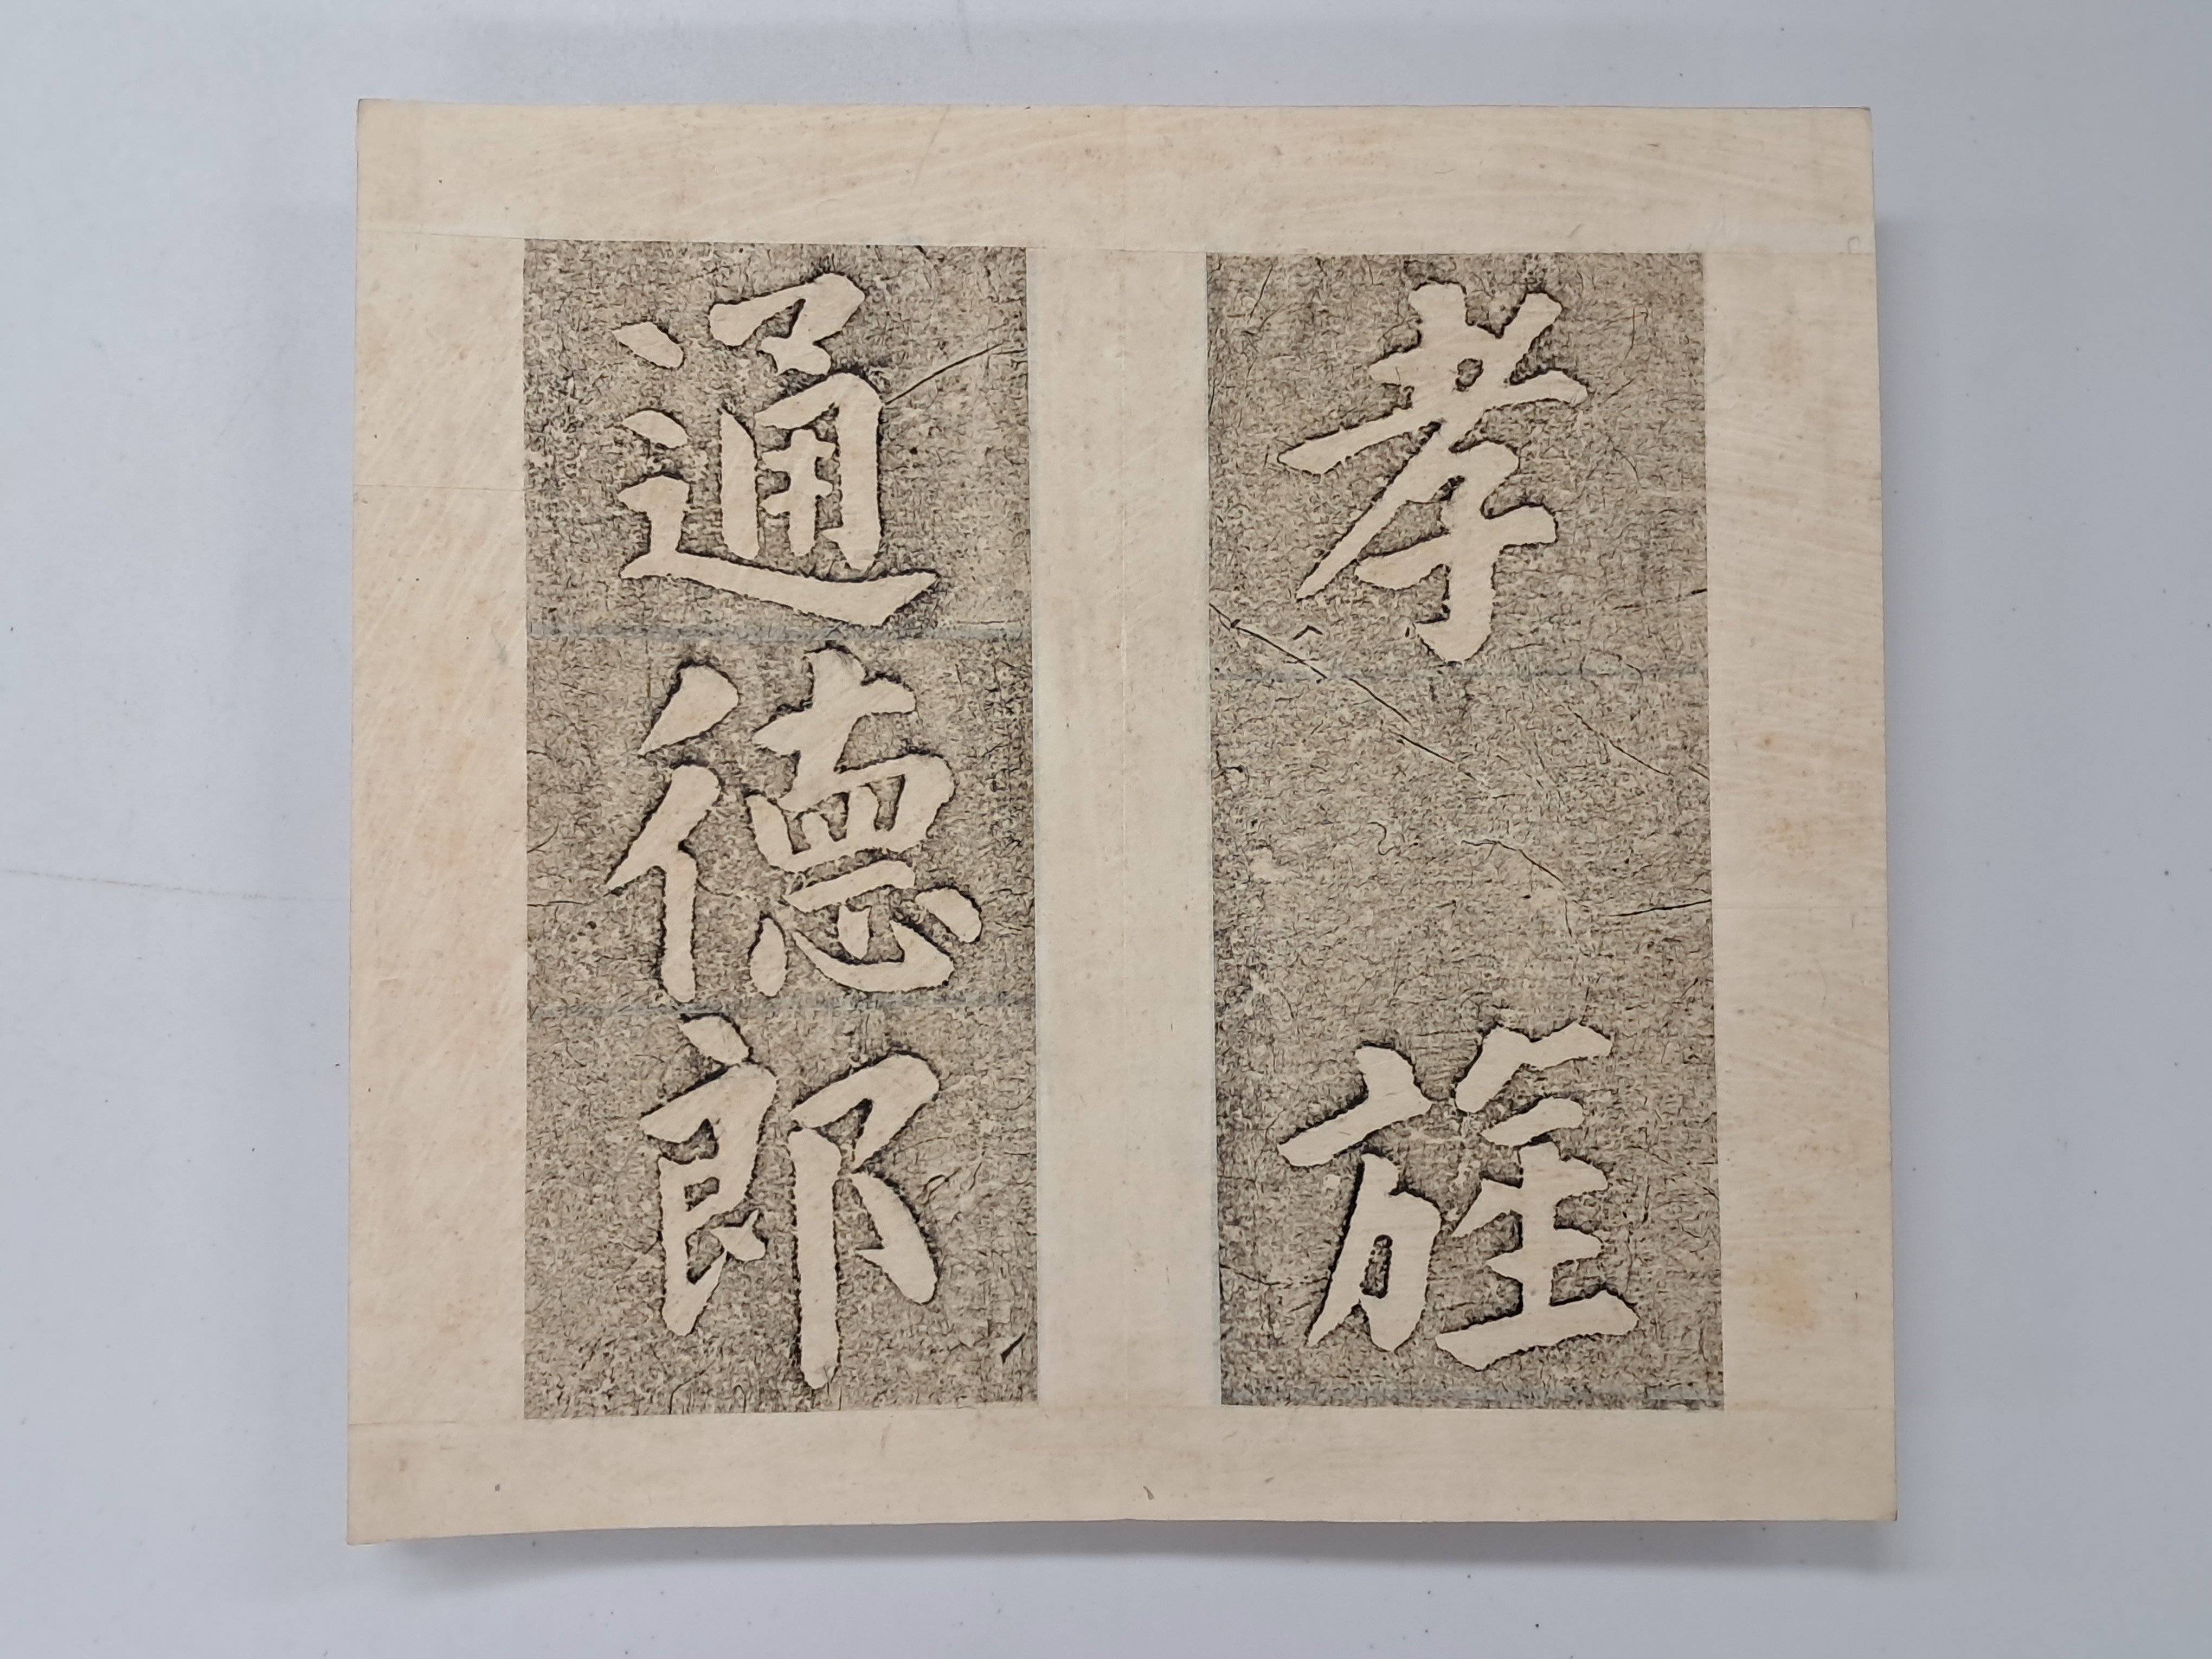 孝 旌
通德郎